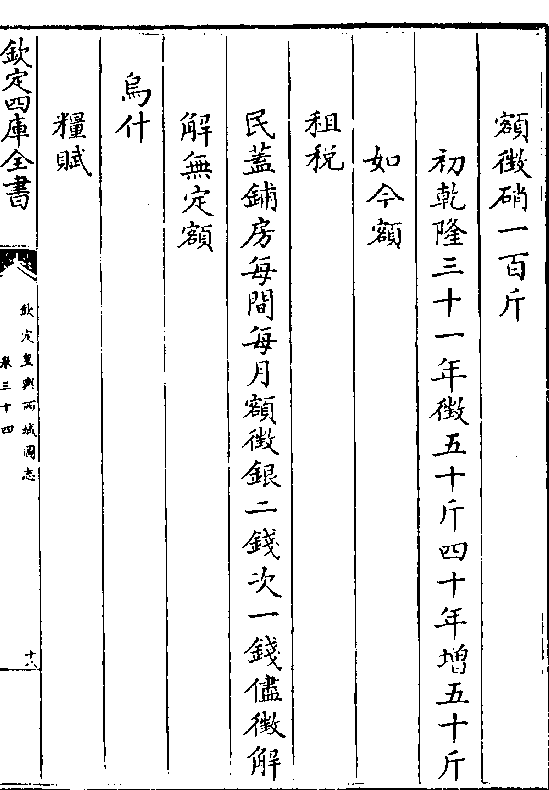 額徴硝一百斤
初乾隆三十一年徴五十斤四十年增五十斤
如今額
租税
民蓋鋪房每間每月額徴銀二錢次一錢儘徴解
解無定額
烏什
糧賦
欽定四庫全書
欽定皇輿西域圖志
卷三十四
十八